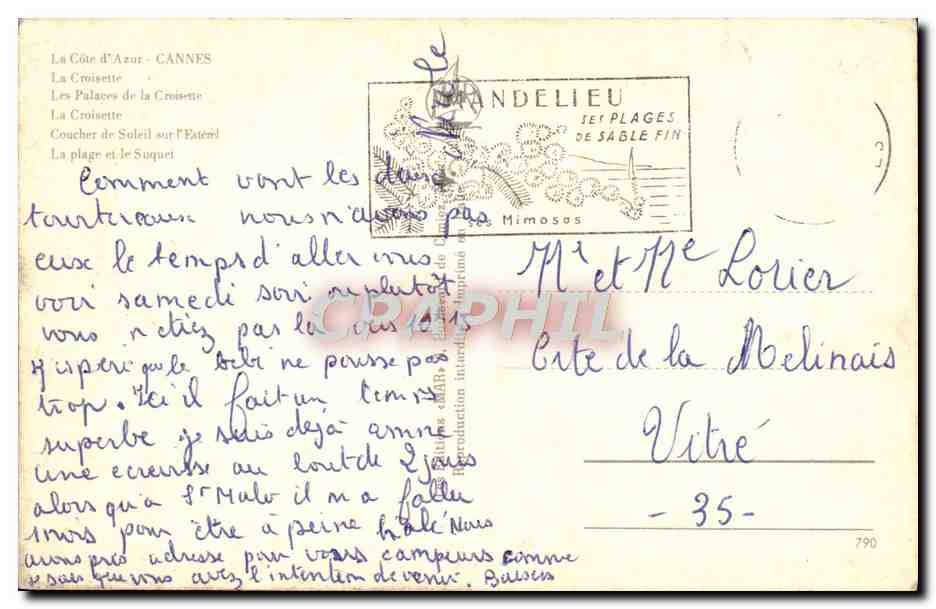 La Côte d'Azur - CANNES
La Croisette
Les Palaces de la Croisette
La Croisette
Coucher de Soleil sur l'Estérel
La plage et le Suquet
MANDELIEU
SES PLAGES
DE SABLE FIN
ses Mimosas
Comment vont les deux
tourtereaux nous n'avons pas
eux le temps d'aller vous
voir samedi soir ou plutôt
vous n'étiez pas là vers 18h15
j'espère que le bébé ne pousse pas
trop. Ici il fait un temps
superbe je suis déjà comme
une écrevisse au bout de 2 jours
alors qu'à St Malo il m'a fallu
1 mois pour être à peine halé Nous
avons pris adresse pour vous campeurs comme
je sais que vous avez l'intention de venir. Baisers
Mr et Me Lorier
Cite de la Melinais
Vitré
- 35 -
790
Editions «MAR»
Reproduction interdite - Imprimé en
CPAPHIL